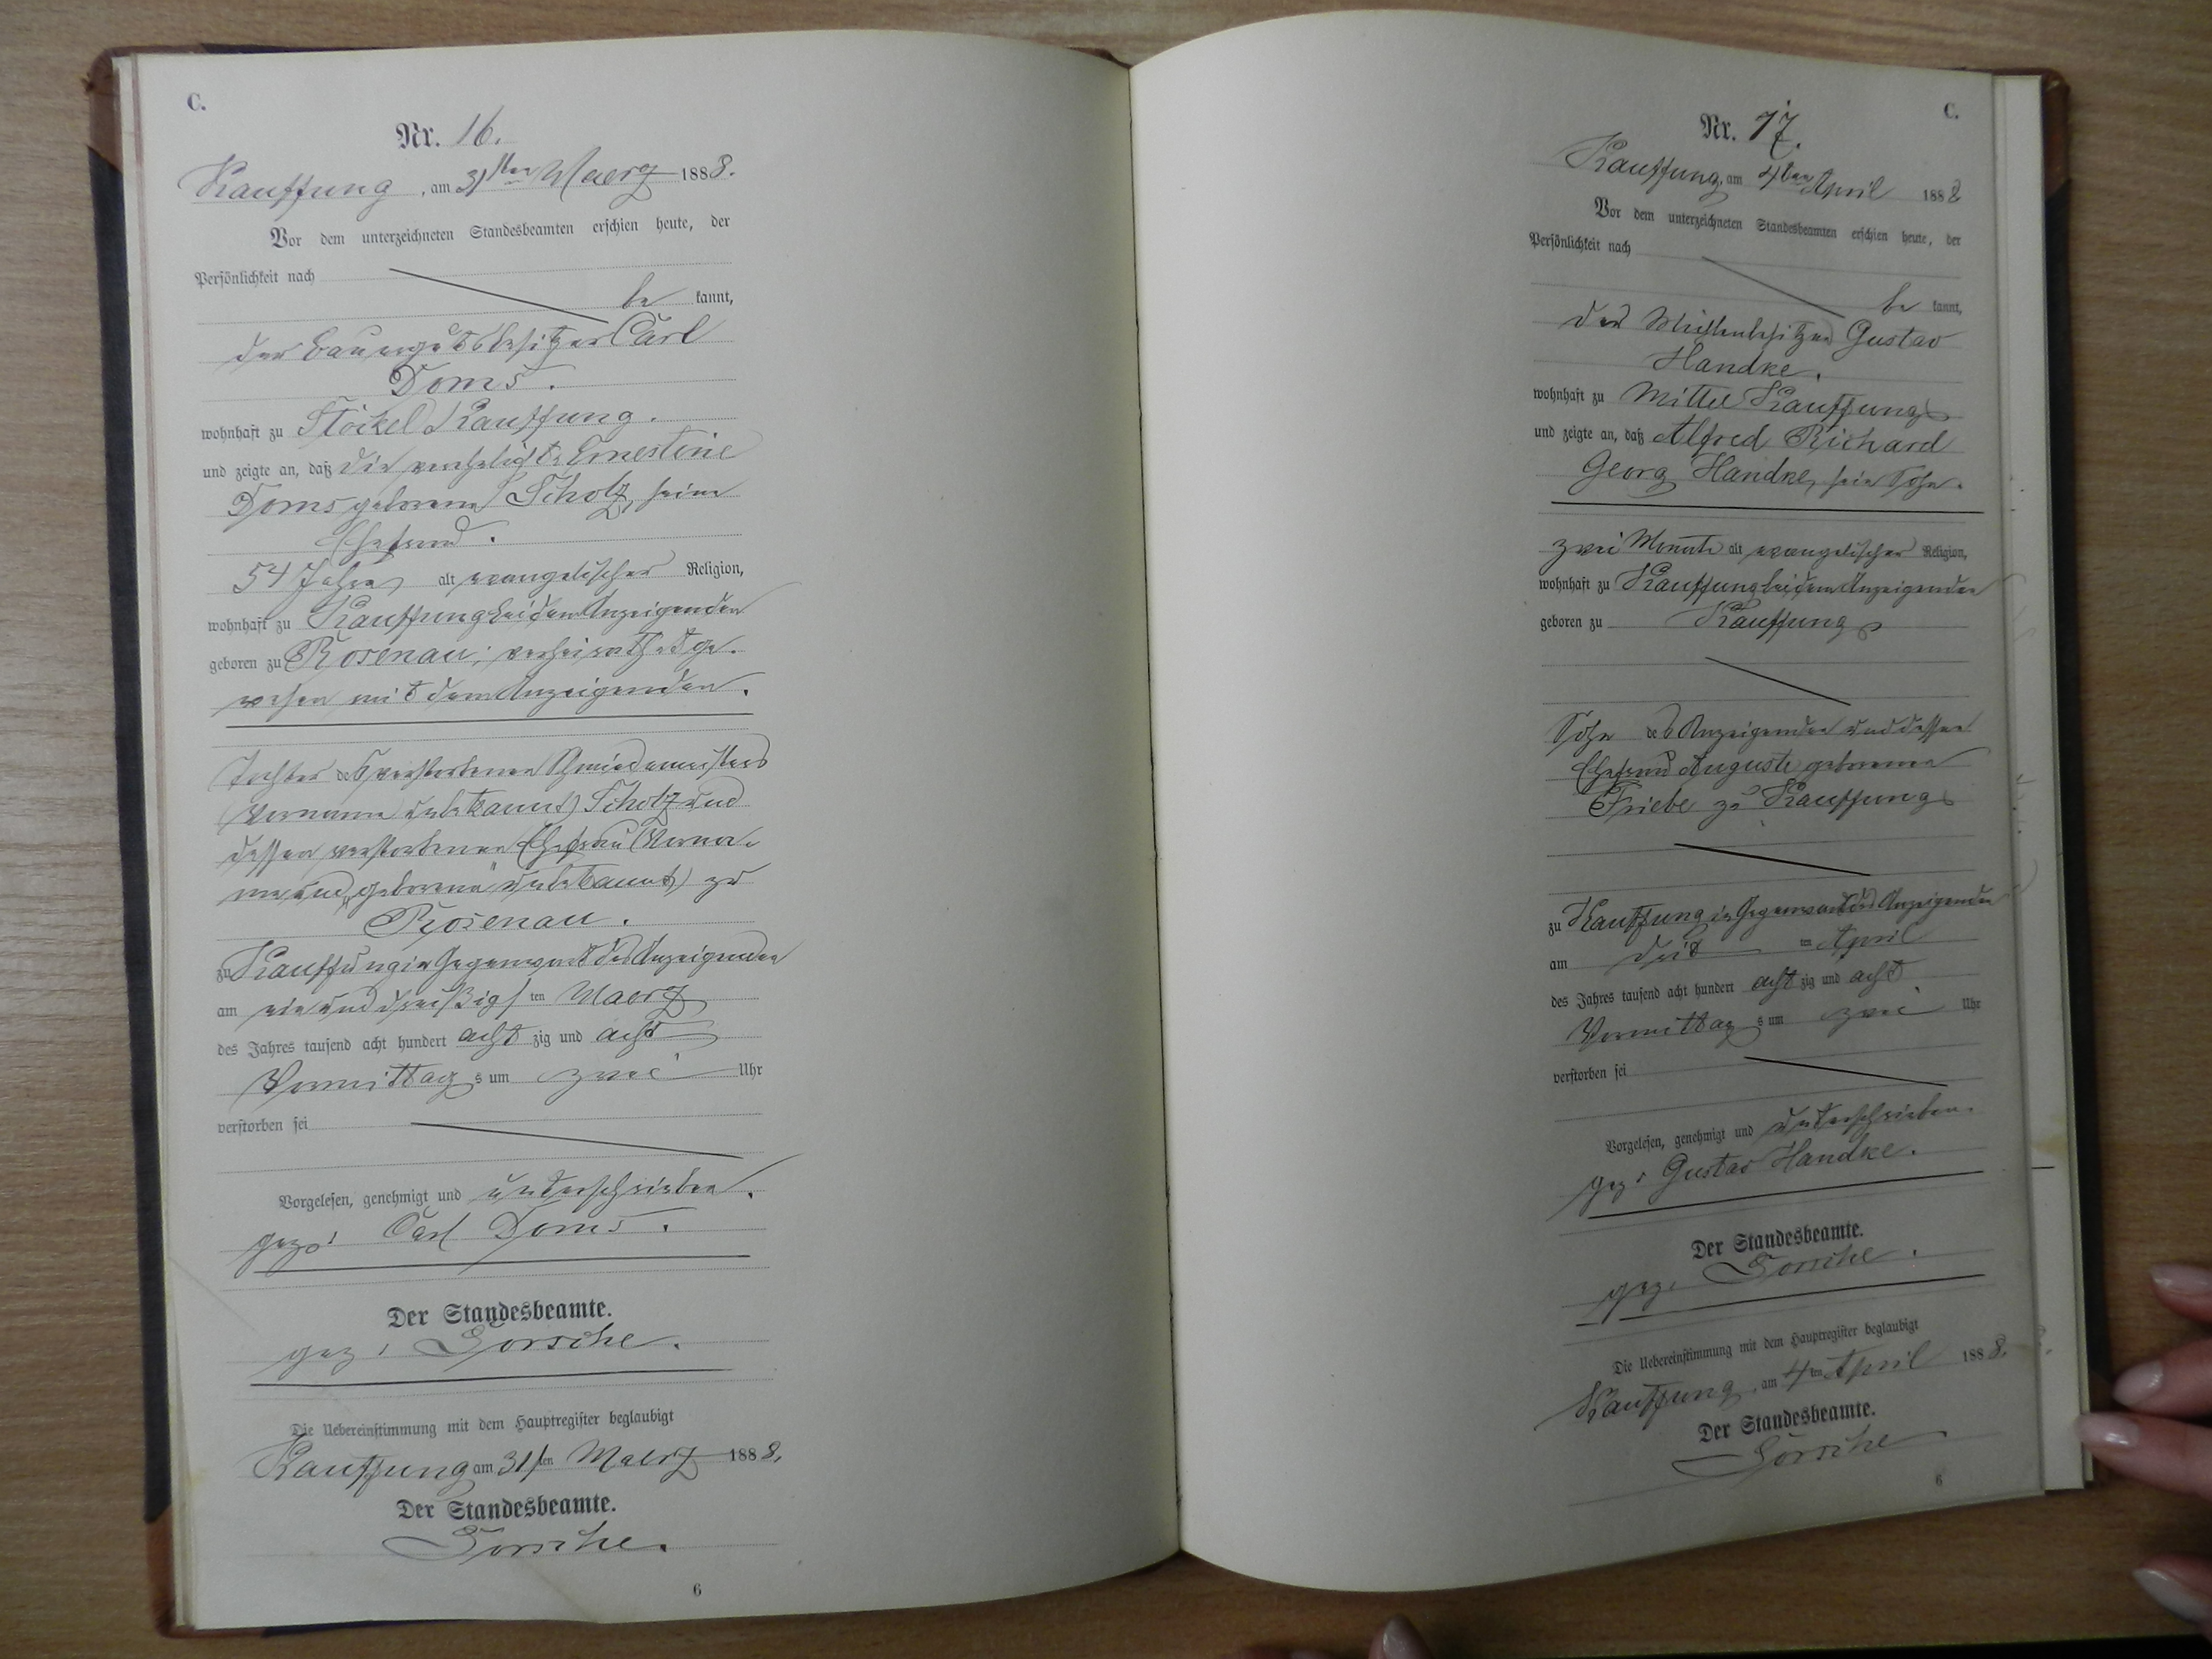 C.
Nr. 16.
Kauffung, am 31ten Maerz 1888.
Vor dem unterzeichneten Standesbeamten erschien heute, der
Persönlichkeit nach
be kannt,
der Bauergutsbesitzer Carl
Doms.
wohnhaft zu Stöckel Kauffung.
und zeigte an, daß die verehelichte Ernestine
Doms geborene Scholz, seine
Ehefrau.
54 Jahre alt evangelischer Religion,
wohnhaft zu Kauffung bei dem Anzeigenden
geboren zu Rosenau; verheirathet ge-
wesen mit dem Anzeigenden.
Tochter des verstorbenen Schmiedemeisters
(Vorname unbekannt) Scholz und
dessen verstorbenen Ehefrau (Vorna-
me und „geborene" unbekannt) zu
Rosenau.
zu Kauffung in Gegenwart des Anzeigenden
am ein und dreißigsten Maerz
des Jahres tausend acht hundert acht zig und acht
Vormittags um zwei Uhr
verstorben sei
Vorgelesen, genehmigt und unterschrieben.
gez: Carl Doms.
Der Standesbeamte.
gez: Gorsche.
Die Uebereinstimmung mit dem Hauptregister beglaubigt
Kauffung am 31ten Maerz 1888.
Der Standesbeamte.
Gorsche.
6
C.
Nr. 17.
Kauffung, am 4ten April 1888
Vor dem unterzeichneten Standesbeamten erschien heute, der
Persönlichkeit nach
be kannt,
der Mühlenbesitzer Gustav
Handke.
wohnhaft zu Mittel Kauffung
und zeigte an, daß Alfred Richard
Georg Handke, sein Sohn.
zwei Monate alt evangelischer Religion,
wohnhaft zu Kauffung bei dem Anzeigenden
geboren zu Kauffung
Sohn des Anzeigenden und dessen
Ehefrau Auguste geborenen
Friebe zu Kauffung
zu Kauffung in Gegenwart des Anzeigenden
am ten April
des Jahres tausend acht hundert acht zig und acht
Vormittags um zwei Uhr
verstorben sei
Vorgelesen, genehmigt und unterschrieben.
gez: Gustav Handke.
Der Standesbeamte.
gez: Gorsche.
Die Uebereinstimmung mit dem Hauptregister beglaubigt
Kauffung, am 4ten April 1888.
Der Standesbeamte.
Gorsche
6